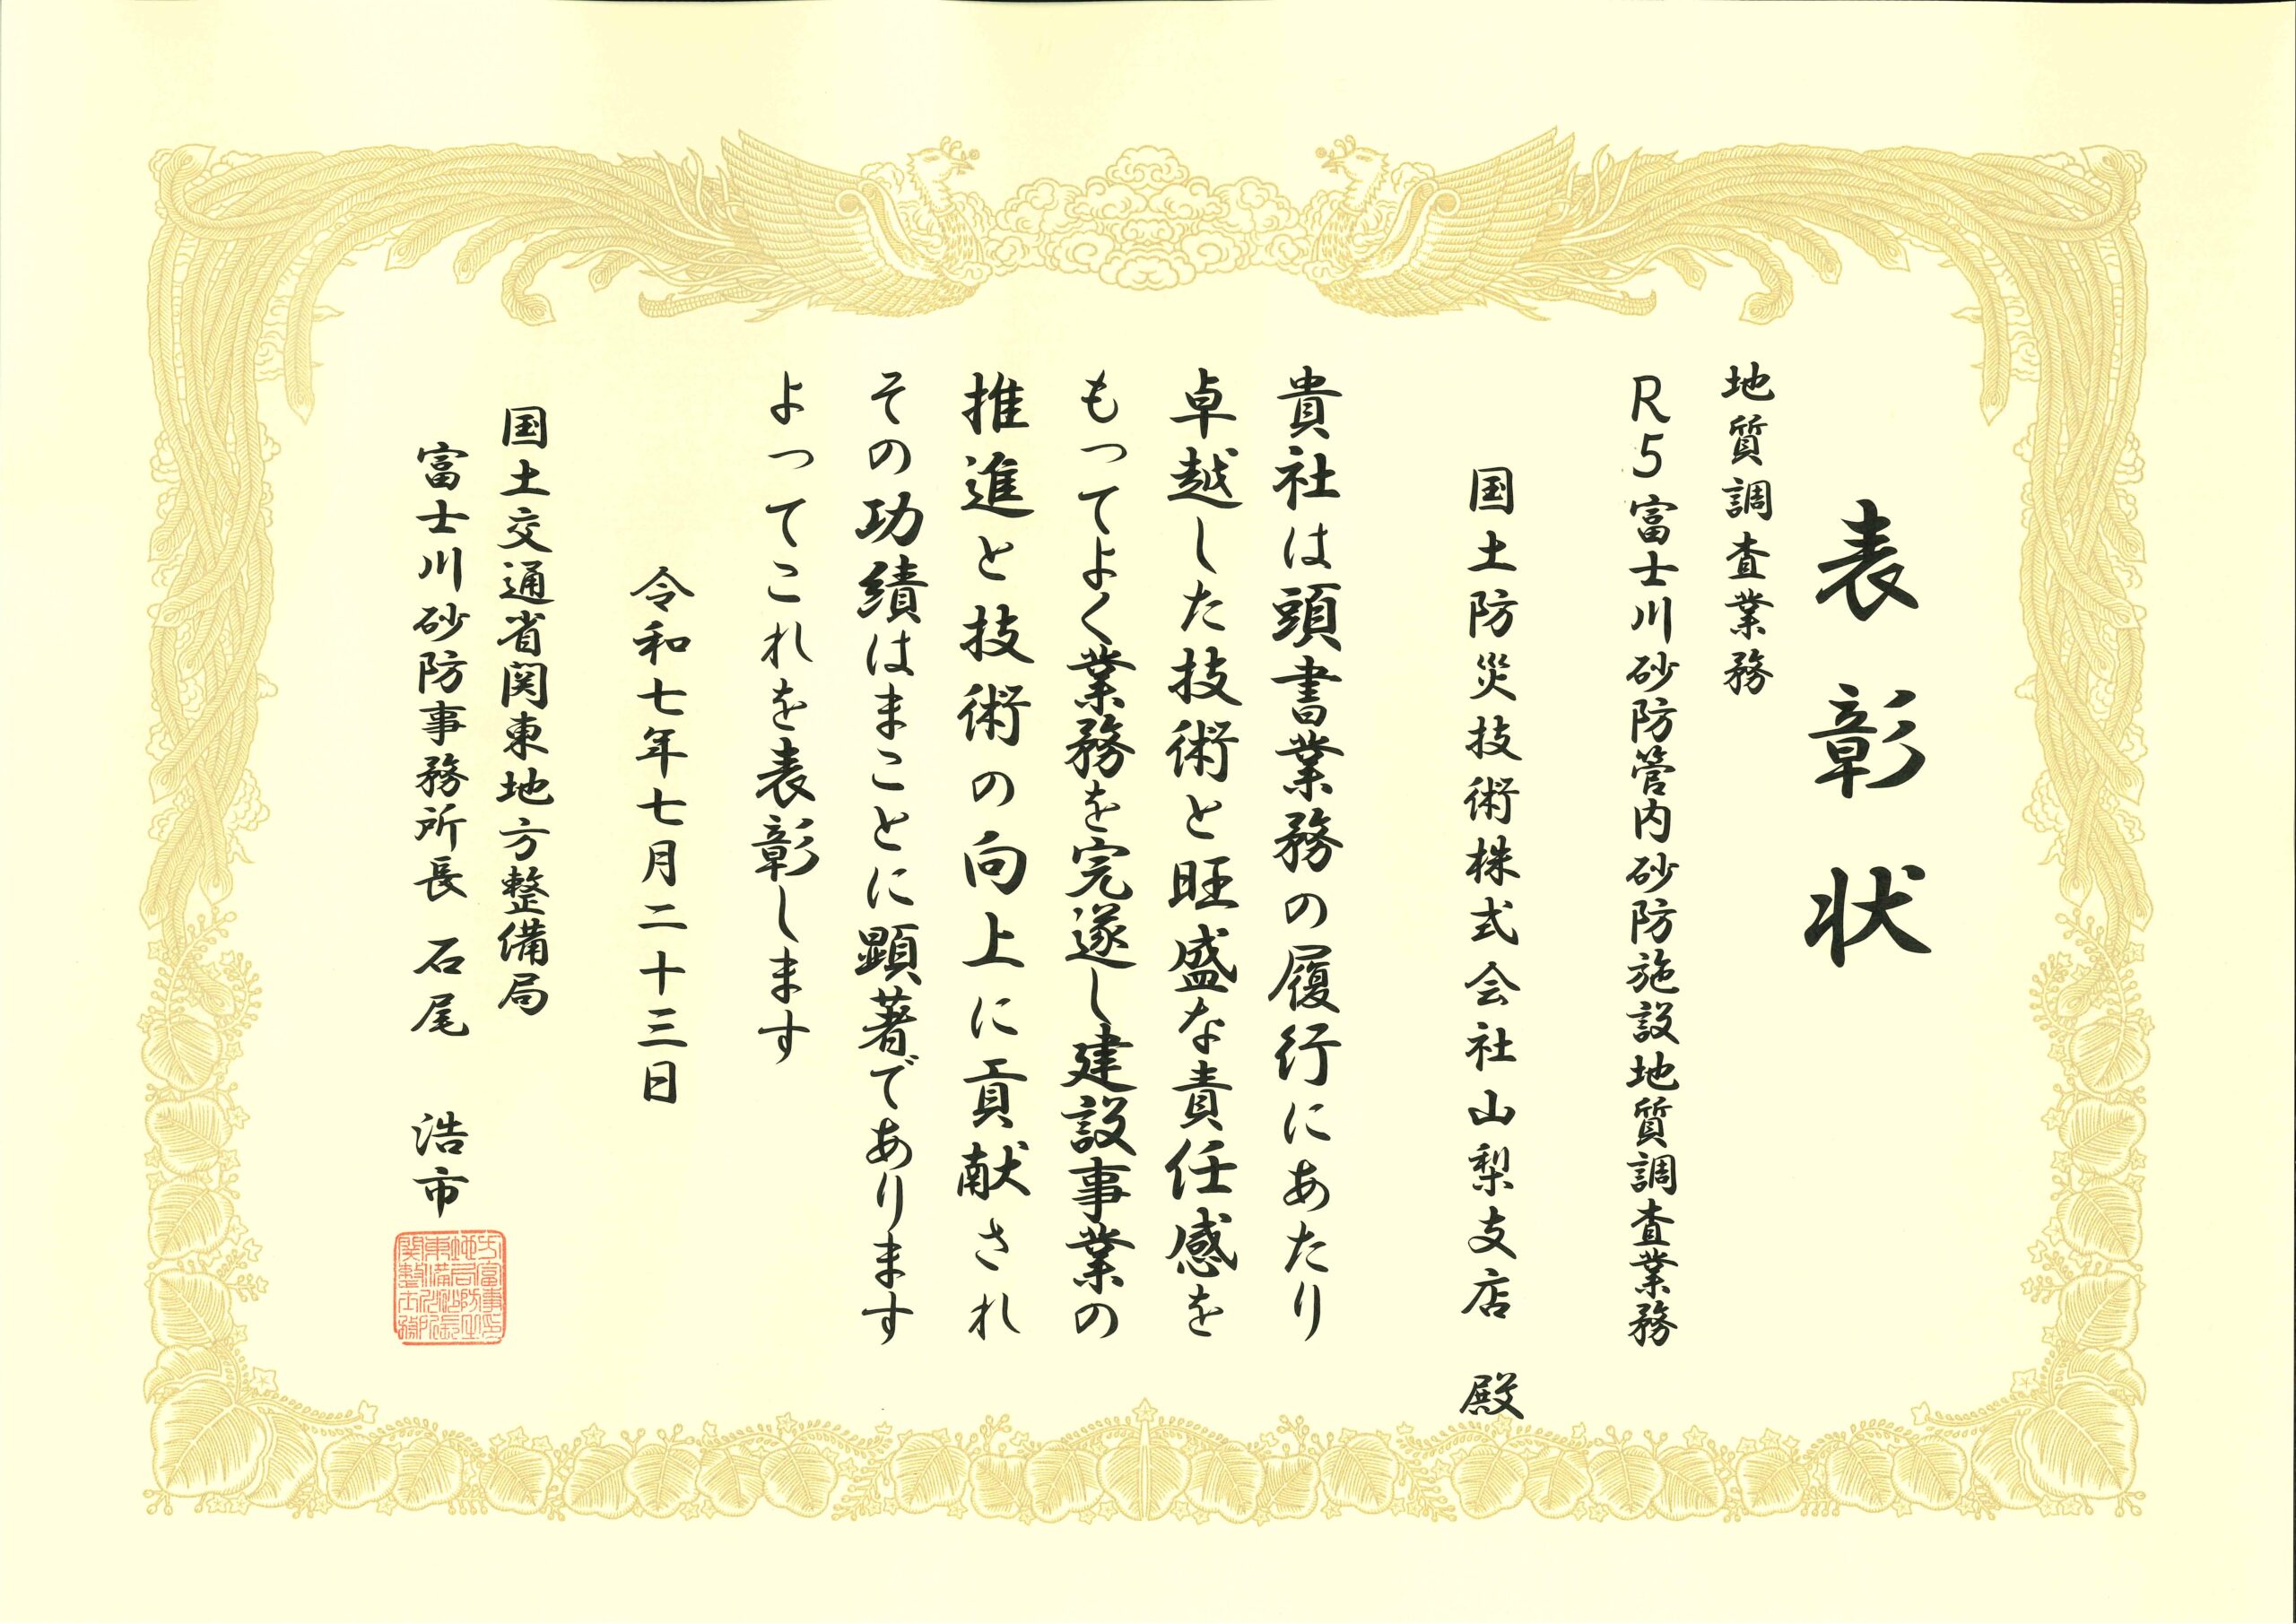 表彰状
地質調査業務
R5富士川砂防管内砂防施設地質調査業務
国土防災技術株式会社山梨支店 殿
貴社は頭書業務の履行にあたり
卓越した技術と旺盛な責任感を
もってよく業務を完遂し建設事業の
推進と技術の向上に貢献され
その功績はまことに顕著であります
よってこれを表彰します
令和七年七月二十三日
国土交通省関東地方整備局
富士川砂防事務所長 石尾 浩市